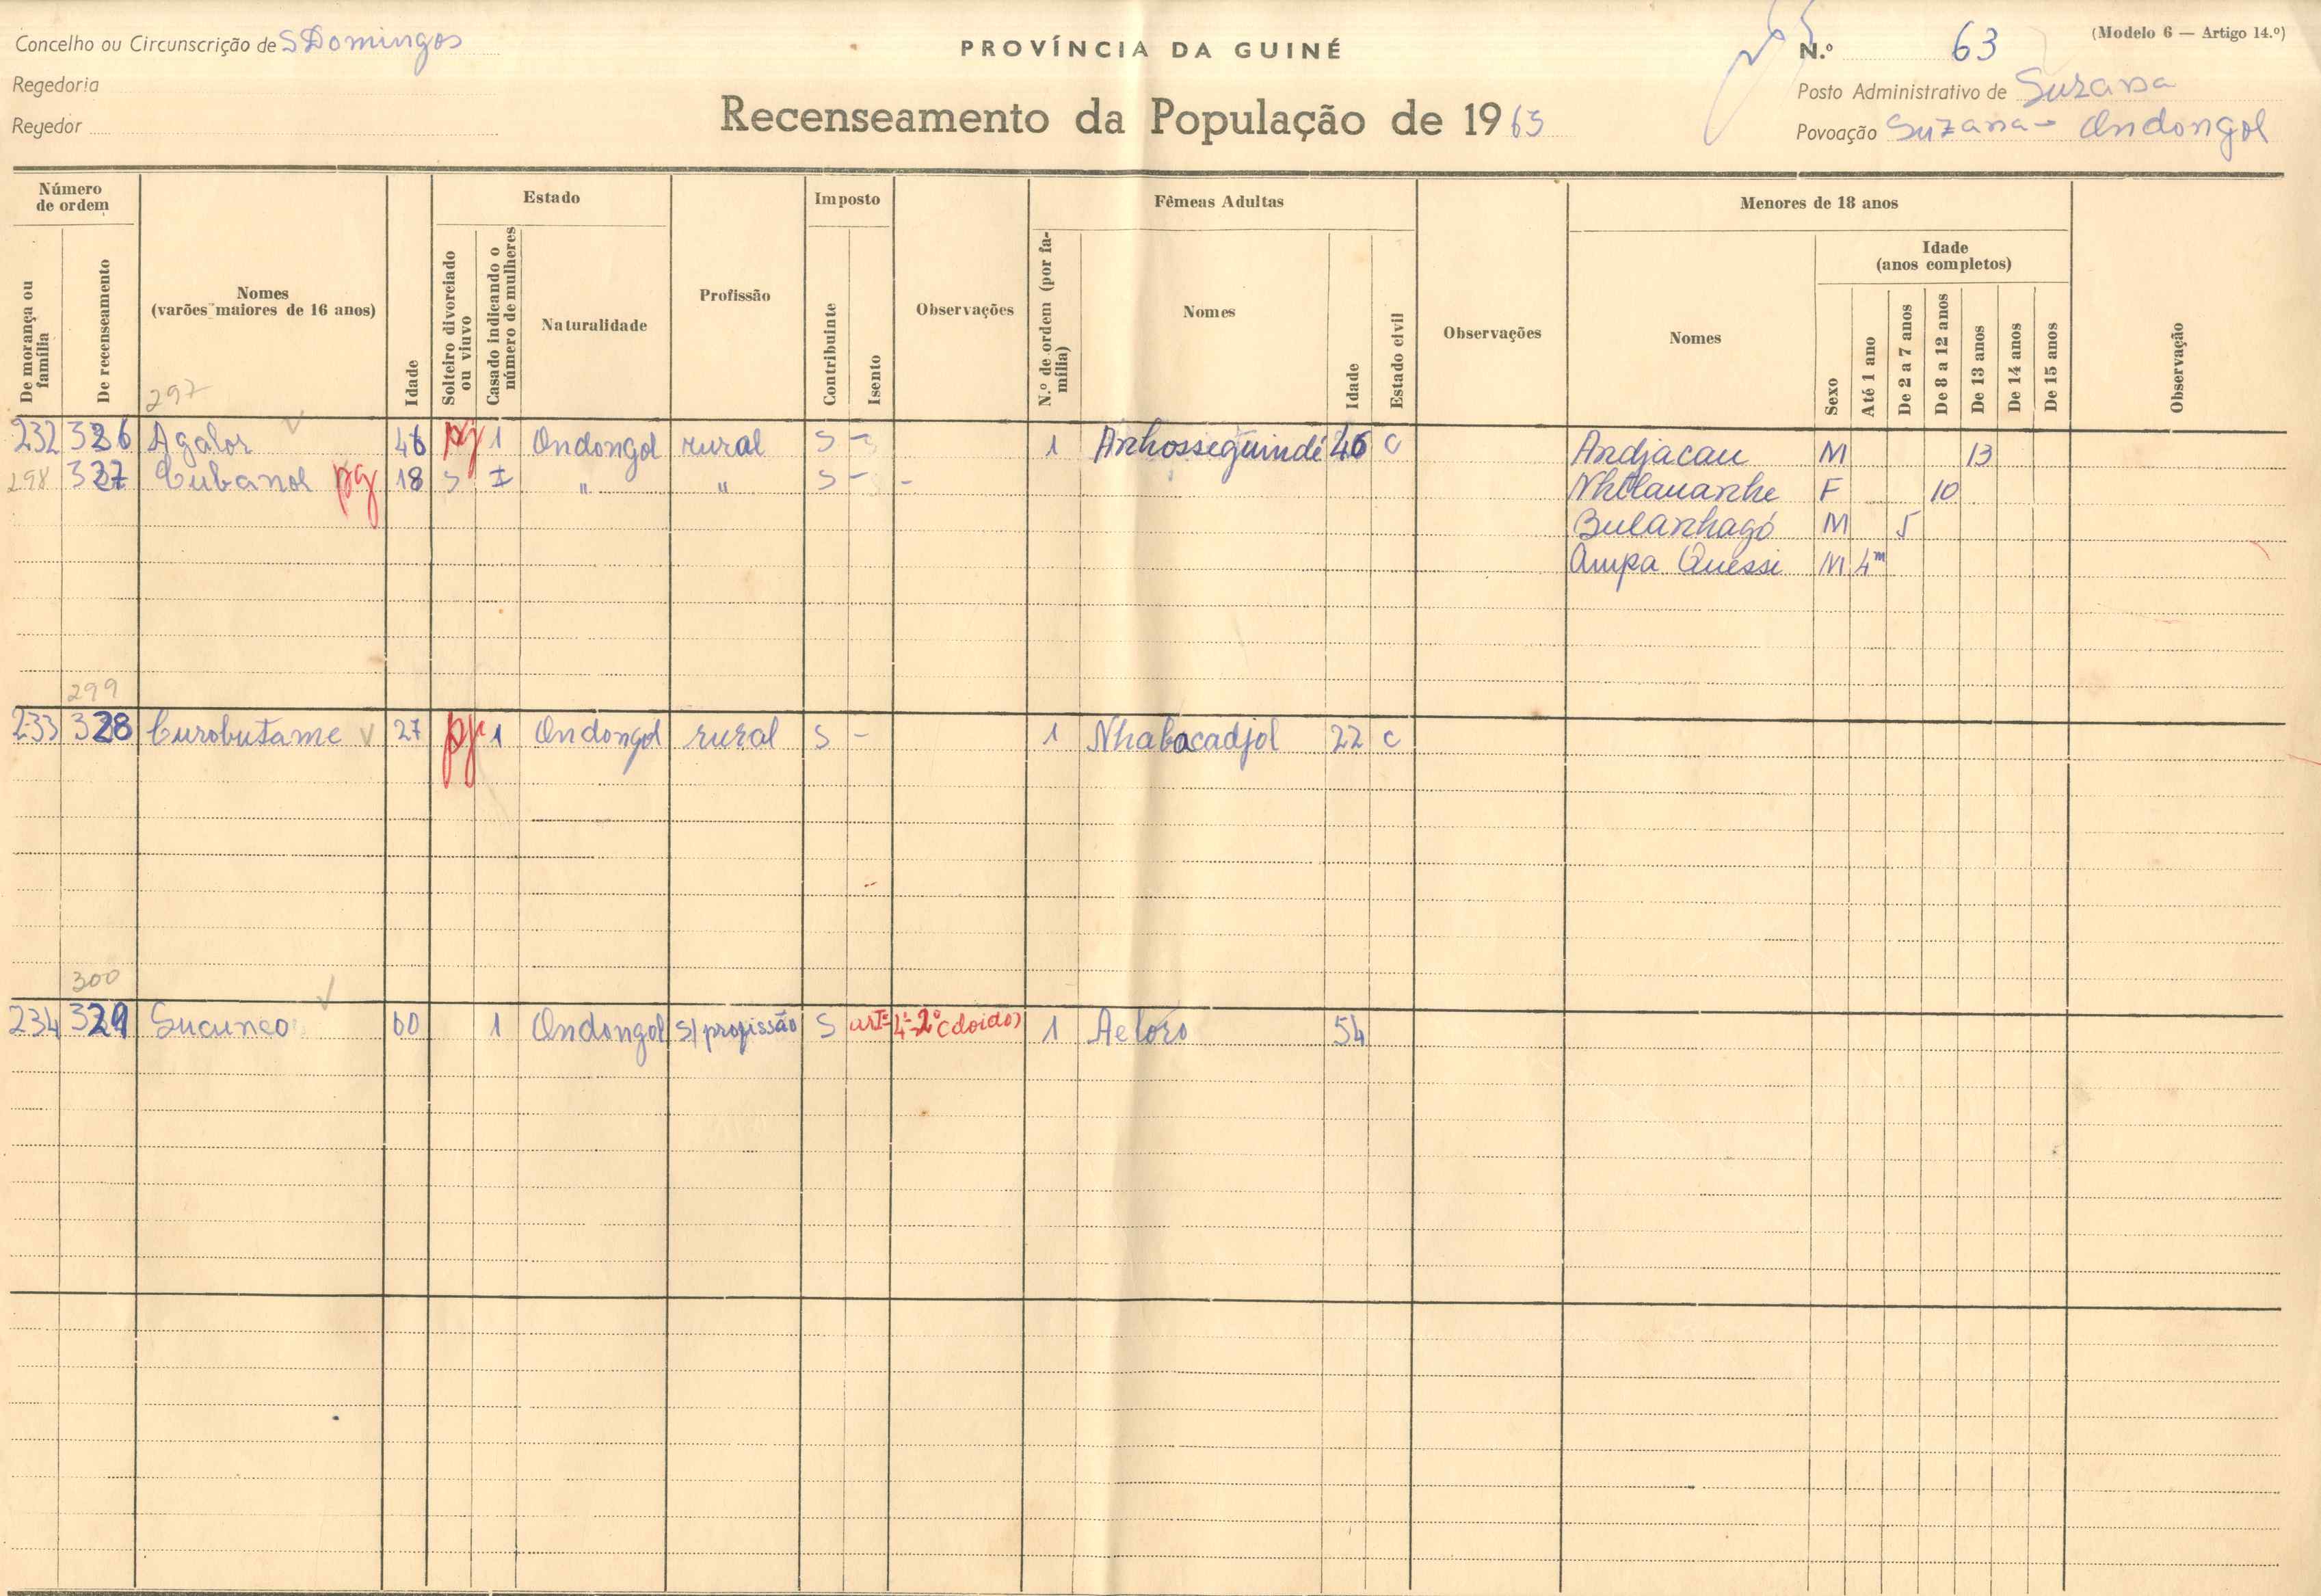 Concelho ou Circunscrição de S Domingos
PROVÍNCIA DA GUINÉ
N.º 63
(Modelo 6 — Artigo 14.º)
Regedoria
Posto Administrativo de Suzana
Recenseamento da População de 1965
Regedor
Povoação Suzana - Ondongol
Número de ordem
De morança ou família
De recenseamento
Nomes
(varões maiores de 16 anos)
Idade
Estado
Solteiro divorciado ou viuvo
Casado indicando o número de mulheres
Naturalidade
Profissão
Imposto
Contribuinte
Isento
Observações
Fêmeas Adultas
N.º de ordem (por família)
Nomes
Idade
Estado civil
Observações
Menores de 18 anos
Nomes
Sexo
Idade
(anos completos)
Até 1 ano
De 2 a 7 anos
De 8 a 12 anos
De 13 anos
De 14 anos
De 15 anos
Observação
297
232 326 Agalor 46 pg 1 Ondongol rural S - 1 Anhosseguindé 46 C Andjacau M 13
298 327 Cubanol pg 18 S I " " S - - F 10
Bulanhagó M 5
Ampa Quessi M 4m
299
233 328 Curobutame 27 pg 1 Ondongol rural S - 1 Nhabacadjol 22 C
300
234 329 Sucuneo 60 1 Ondongol S/ profissão S artº 4º-2º (doido) 1 Aeloro 54